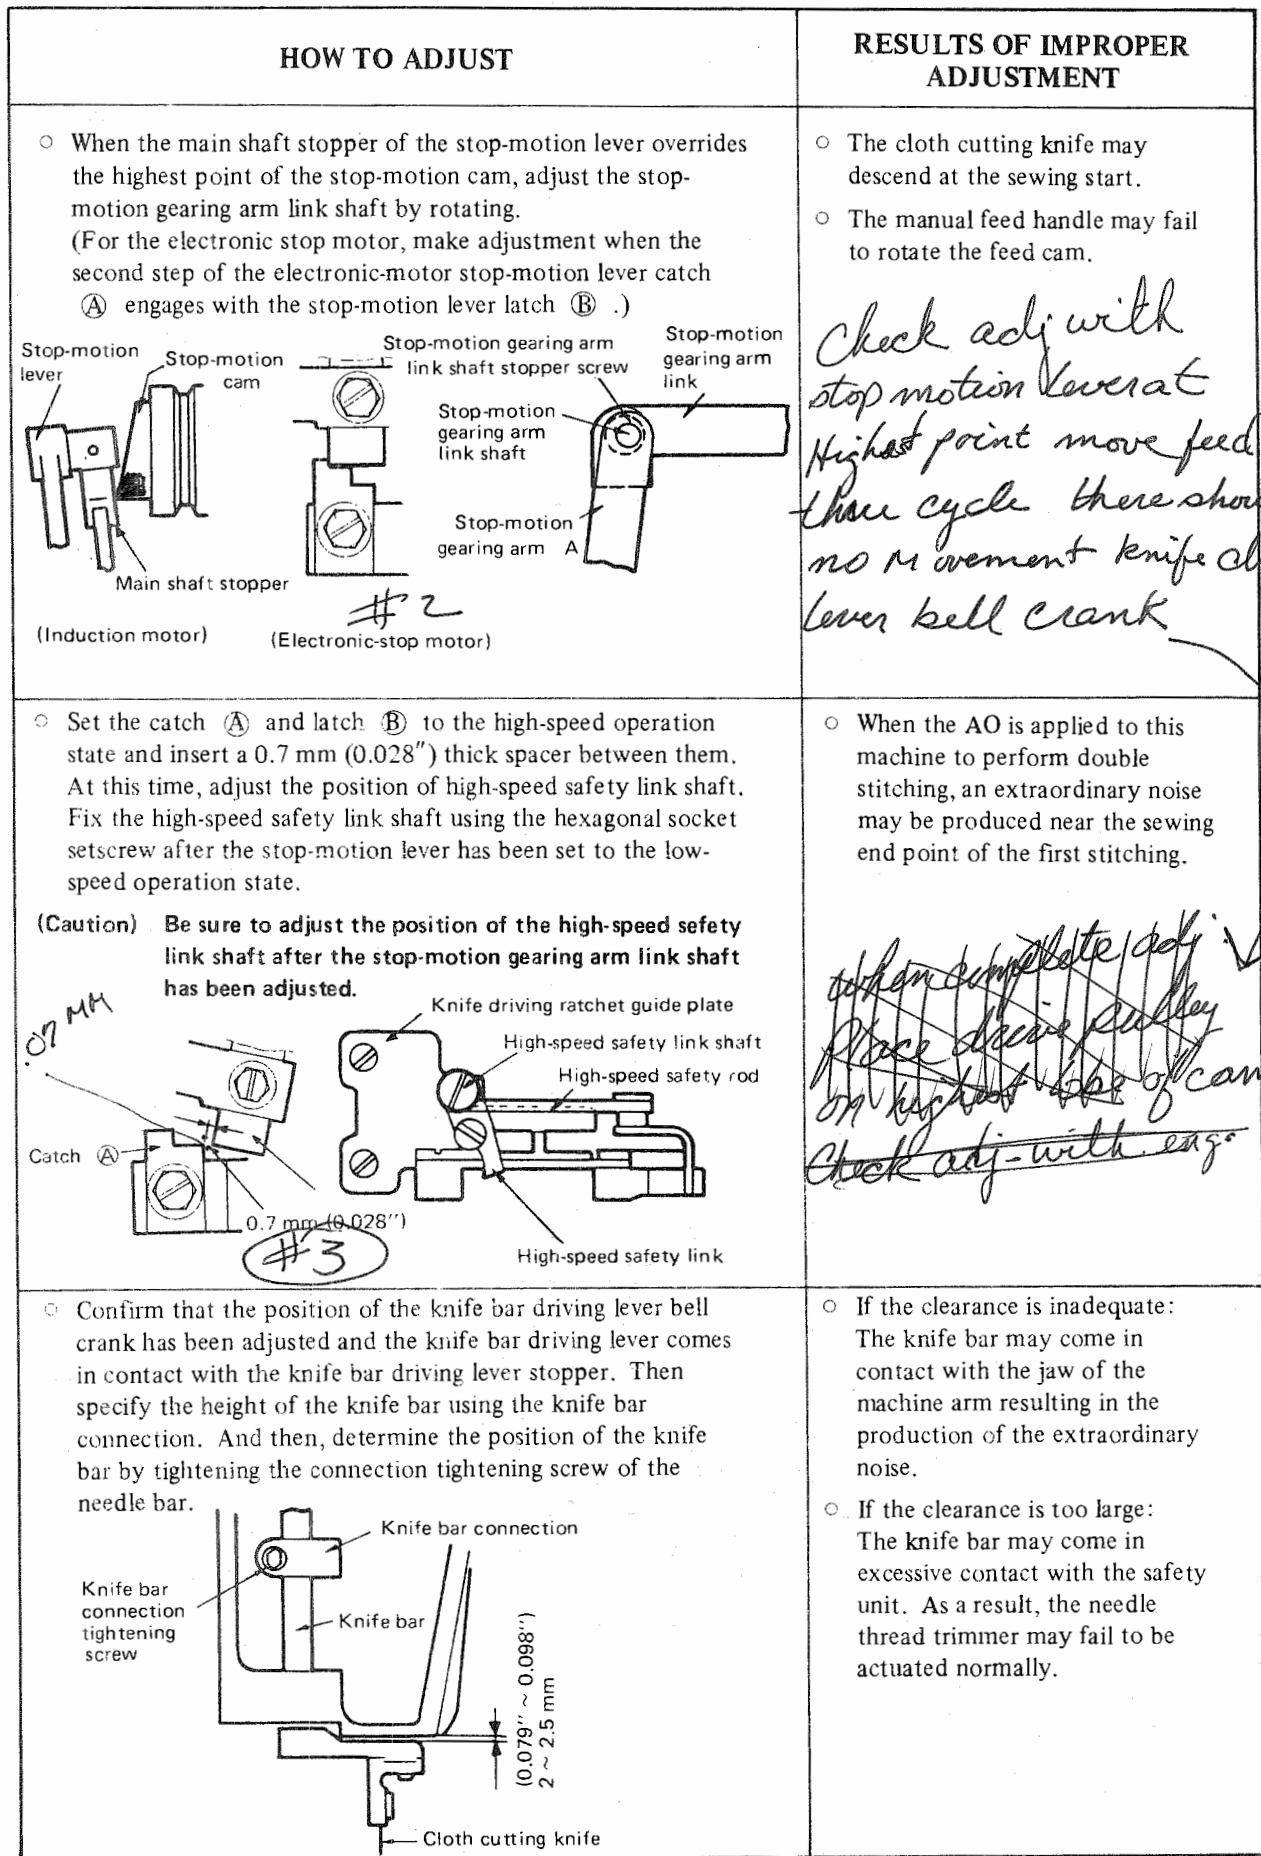 HOW TO ADJUST
RESULTS OF IMPROPER
ADJUSTMENT
○ When the main shaft stopper of the stop-motion lever overrides
the highest point of the stop-motion cam, adjust the stop-
motion gearing arm link shaft by rotating.
(For the electronic stop motor, make adjustment when the
second step of the electronic-motor stop-motion lever catch
Ⓐ engages with the stop-motion lever latch Ⓑ .)
Stop-motion
lever
Stop-motion
cam
Main shaft stopper
(Induction motor)
Stop-motion gearing arm
link shaft stopper screw
Stop-motion
gearing arm
link
Stop-motion
gearing arm
link shaft
Stop-motion
gearing arm A
#2
(Electronic-stop motor)
○ The cloth cutting knife may
descend at the sewing start.
○ The manual feed handle may fail
to rotate the feed cam.
Check adj with
stop motion lever at
Highest point move feed
there show
no Movement knife
lever bell crank
○ Set the catch Ⓐ and latch Ⓑ to the high-speed operation
state and insert a 0.7 mm (0.028″) thick spacer between them.
At this time, adjust the position of high-speed safety link shaft.
Fix the high-speed safety link shaft using the hexagonal socket
setscrew after the stop-motion lever has been set to the low-
speed operation state.
(Caution) Be sure to adjust the position of the high-speed sefety
link shaft after the stop-motion gearing arm link shaft
has been adjusted.
.07 MM
Catch Ⓐ
0.7 mm (0.028″)
#3
Knife driving ratchet guide plate
High-speed safety link shaft
High-speed safety rod
High-speed safety link
○ When the AO is applied to this
machine to perform double
stitching, an extraordinary noise
may be produced near the sewing
end point of the first stitching.
When complete adj
Place drive pulley
on highest lobe of cam
Check adj-with eng.
○ Confirm that the position of the knife bar driving lever bell
crank has been adjusted and the knife bar driving lever comes
in contact with the knife bar driving lever stopper. Then
specify the height of the knife bar using the knife bar
connection. And then, determine the position of the knife
bar by tightening the connection tightening screw of the
needle bar.
Knife bar connection
Knife bar
connection
tightening
screw
Knife bar
(0.079″ ~ 0.098″)
2 ~ 2.5 mm
Cloth cutting knife
○ If the clearance is inadequate:
The knife bar may come in
contact with the jaw of the
machine arm resulting in the
production of the extraordinary
noise.
○ If the clearance is too large:
The knife bar may come in
excessive contact with the safety
unit. As a result, the needle
thread trimmer may fail to be
actuated normally.